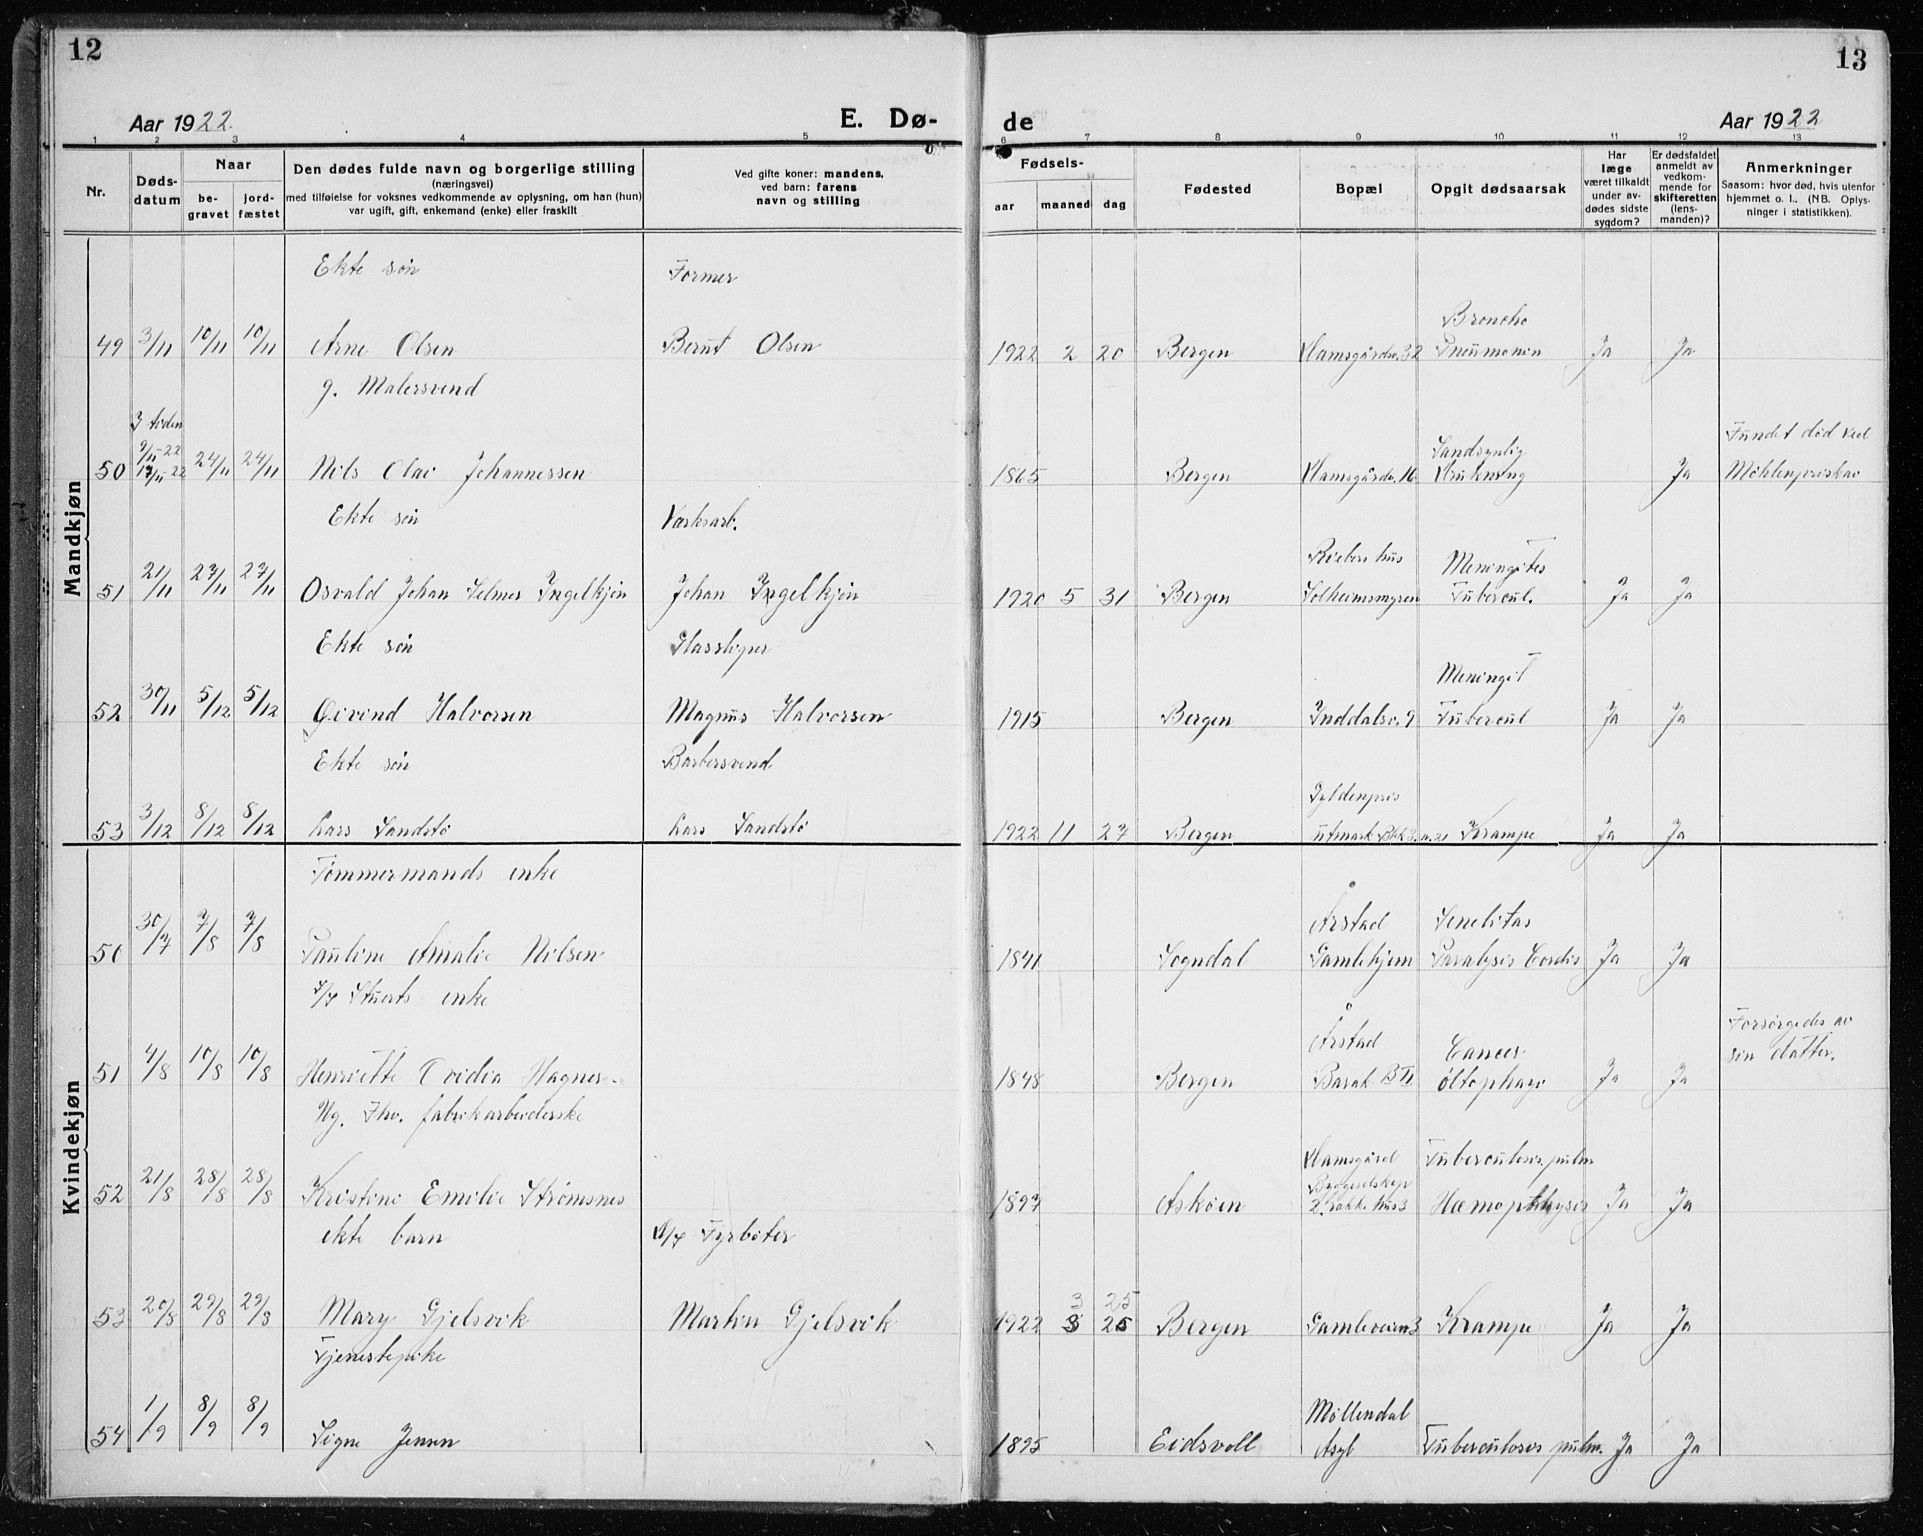 12
13
Aar 1922.
E. Dø-
de
Aar 1922
1 2 3 4 5 6 7 8 9 10 11 12 13
Nr.
Døds-
datum
Naar
be-
gravet
jord-
fæstet
Den dødes fulde navn og borgerlige stilling
(næringsvei)
med tilføielse for voksnes vedkommende av oplysning, om han (hun)
var ugift, gift, enkemand (enke) eller fraskilt
Ved gifte koner: mandens,
ved barn: farens
navn og stilling
Fødsels-
aar maaned dag
Fødested
Bopæl
Opgit dødsaarsak
Har
læge
været tilkaldt
under av-
dødes sidste
sygdom?
Er dødsfaldet
anmeldt av
vedkom-
mende for
skifteretten
(lens-
manden)?
Anmerkninger
Saasom: hvor død, hvis utenfor
hjemmet o. l., (NB. Oplys-
ninger i statistikken).
Mandkjøn
Ekte søn Former
Broncho
49 3/11 10/11 10/11 Arne Olsen Bernt Olsen 1922 2 20 Bergen Damsgårdsv. 32 Pneumonin Ja Ja
g. Malersvend
I tiden
9/11-22 Sandsynlig Fundet død ved
50 17/11-22 24/11 24/11 Nils Olai Johannessen 1865 Bergen Damsgårdsv. 16 Drukning Ja Møhlenpriskai
Ekte søn Værksarb.
Riebers hus Meningites
51 21/11 27/11 27/11 Osvald Johan Selmer Ingelkjøn Johan Ingelkjøn 1920 5 31 Bergen Solheimsmyren Tubercul. Ja Ja
Ekte søn Glassliper
Meningit
52 30/11 5/12 5/12 Øivind Halvorsen Magnus Halvorsen 1915 Bergen Inddalsv. 9 Tubercul Ja Ja
Ekte søn Barbersvend
Gyldenpris
53 3/12 8/12 8/12 Lars Sandstø Lars Sandstø 1922 11 27 Bergen utmark Blk 3. n. 21 Krampe Ja Ja
Kvindekjøn
Tømmermands enke
Årstad Senelitas
50 30/7 7/8 7/8 Pauline Amalie Nilsen 1841 Sogndal Gamlehjem Paralysis Cordis Ja Ja
Stuerts enke
Årstad Cancer Forsørgedes av
sin datter.
51 4/8 10/8 10/8 Henriette Ovidia Hagner 1848 Bergen Barak B II Ja Ja
Ug. Fhv. fabrikarbeiderske
Damsgård Tuberculosis pulm
Byggeselskap
52 21/8 28/8 28/8 Kristine Emilie Strømsnes 1897 Askøen 2. række hus 3 Hæmopthysis Ja Ja
ekte barn D/S Fyrbøter
3 25
53 20/8 29/8 29/8 Mary Gjelsvik Martin Gjelsvik 1922 3 25 Bergen Gamleveien 3 Krampe Ja Ja
Tjenestepike
Møllendal
54 1/9 8/9 8/9 Signe Jensen 1895 Eidsvoll Asyl Tuberculosis pulm. Ja Ja